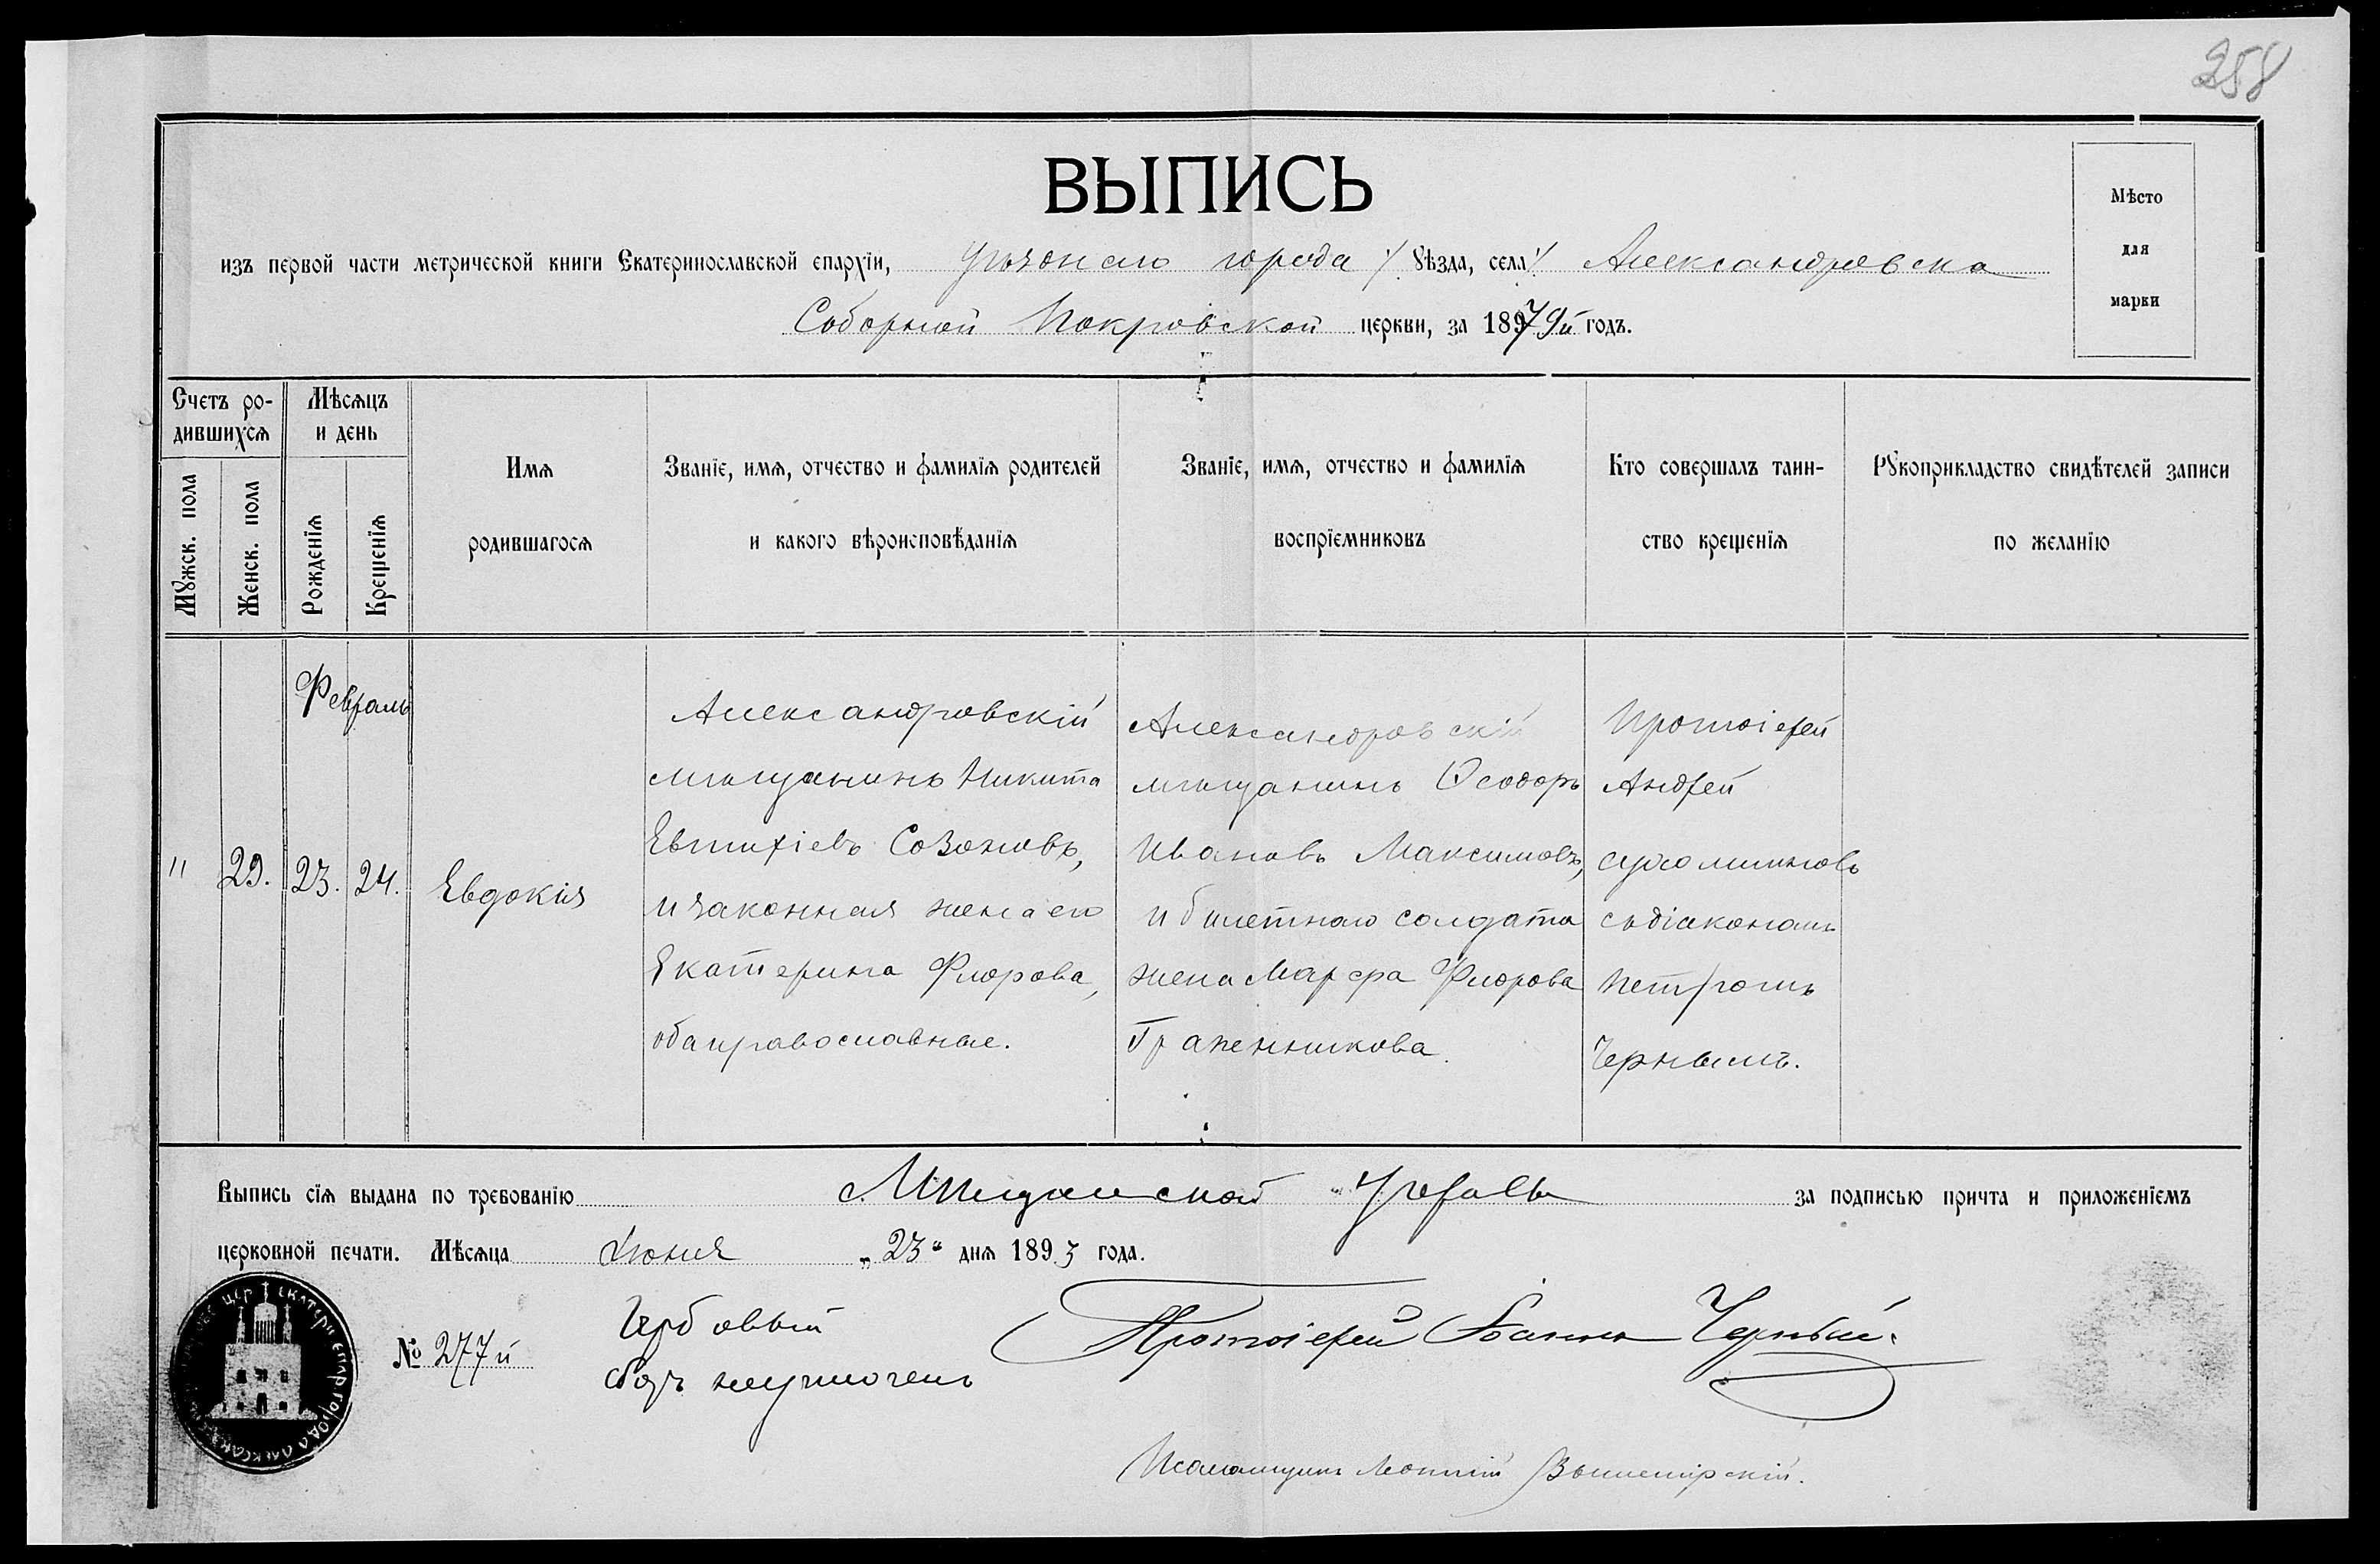 258
ВЫПИСЬ
Мѣсто
для
марки
изъ первой части метрической книги Екатеринославской епархіи, уѣзднаго города уѣзда, села Александровска
Соборной Покровской церкви, за 1879й годъ.
Счетъ ро-
дившихся
Мѣсяцъ
и день
Мужск. пола
Женск. пола
Рожденія
Крещенія
Имя
родившагося
Званіе, имя, отчество и фамилія родителей
и какого вѣроисповѣданія
Званіе, имя, отчество и фамилія
воспріемниковъ
Кто совершалъ таин-
ство крещенія
Рукоприкладство свидѣтелей записи
по желанію
Февраль
" 29. 23. 24.
Евдокія
Александровскій
мѣщанинъ Никита
Евтихіевъ Созоновъ,
и законная жена его
Екатерина Флорова,
оба православные.
Александровскій
мѣщанинъ Ѳеодоръ
Ивановъ Максимовъ,
и билетнаго солдата
жена Марѳа Флорова
Граженникова.
Протоіерей
Андрей
Сухомлиновъ
съ діакономъ
Петромъ
Чернымъ.
Выпись сія выдана по требованію Мѣщанской Управы за подписью причта и приложеніемъ
церковной печати. Мѣсяца Іюня „23" дня 1893 года.
№ 277й
Гербовый
сборъ неуплоченъ
Протоіерей Іоаннъ Черный.
Псаломщикъ